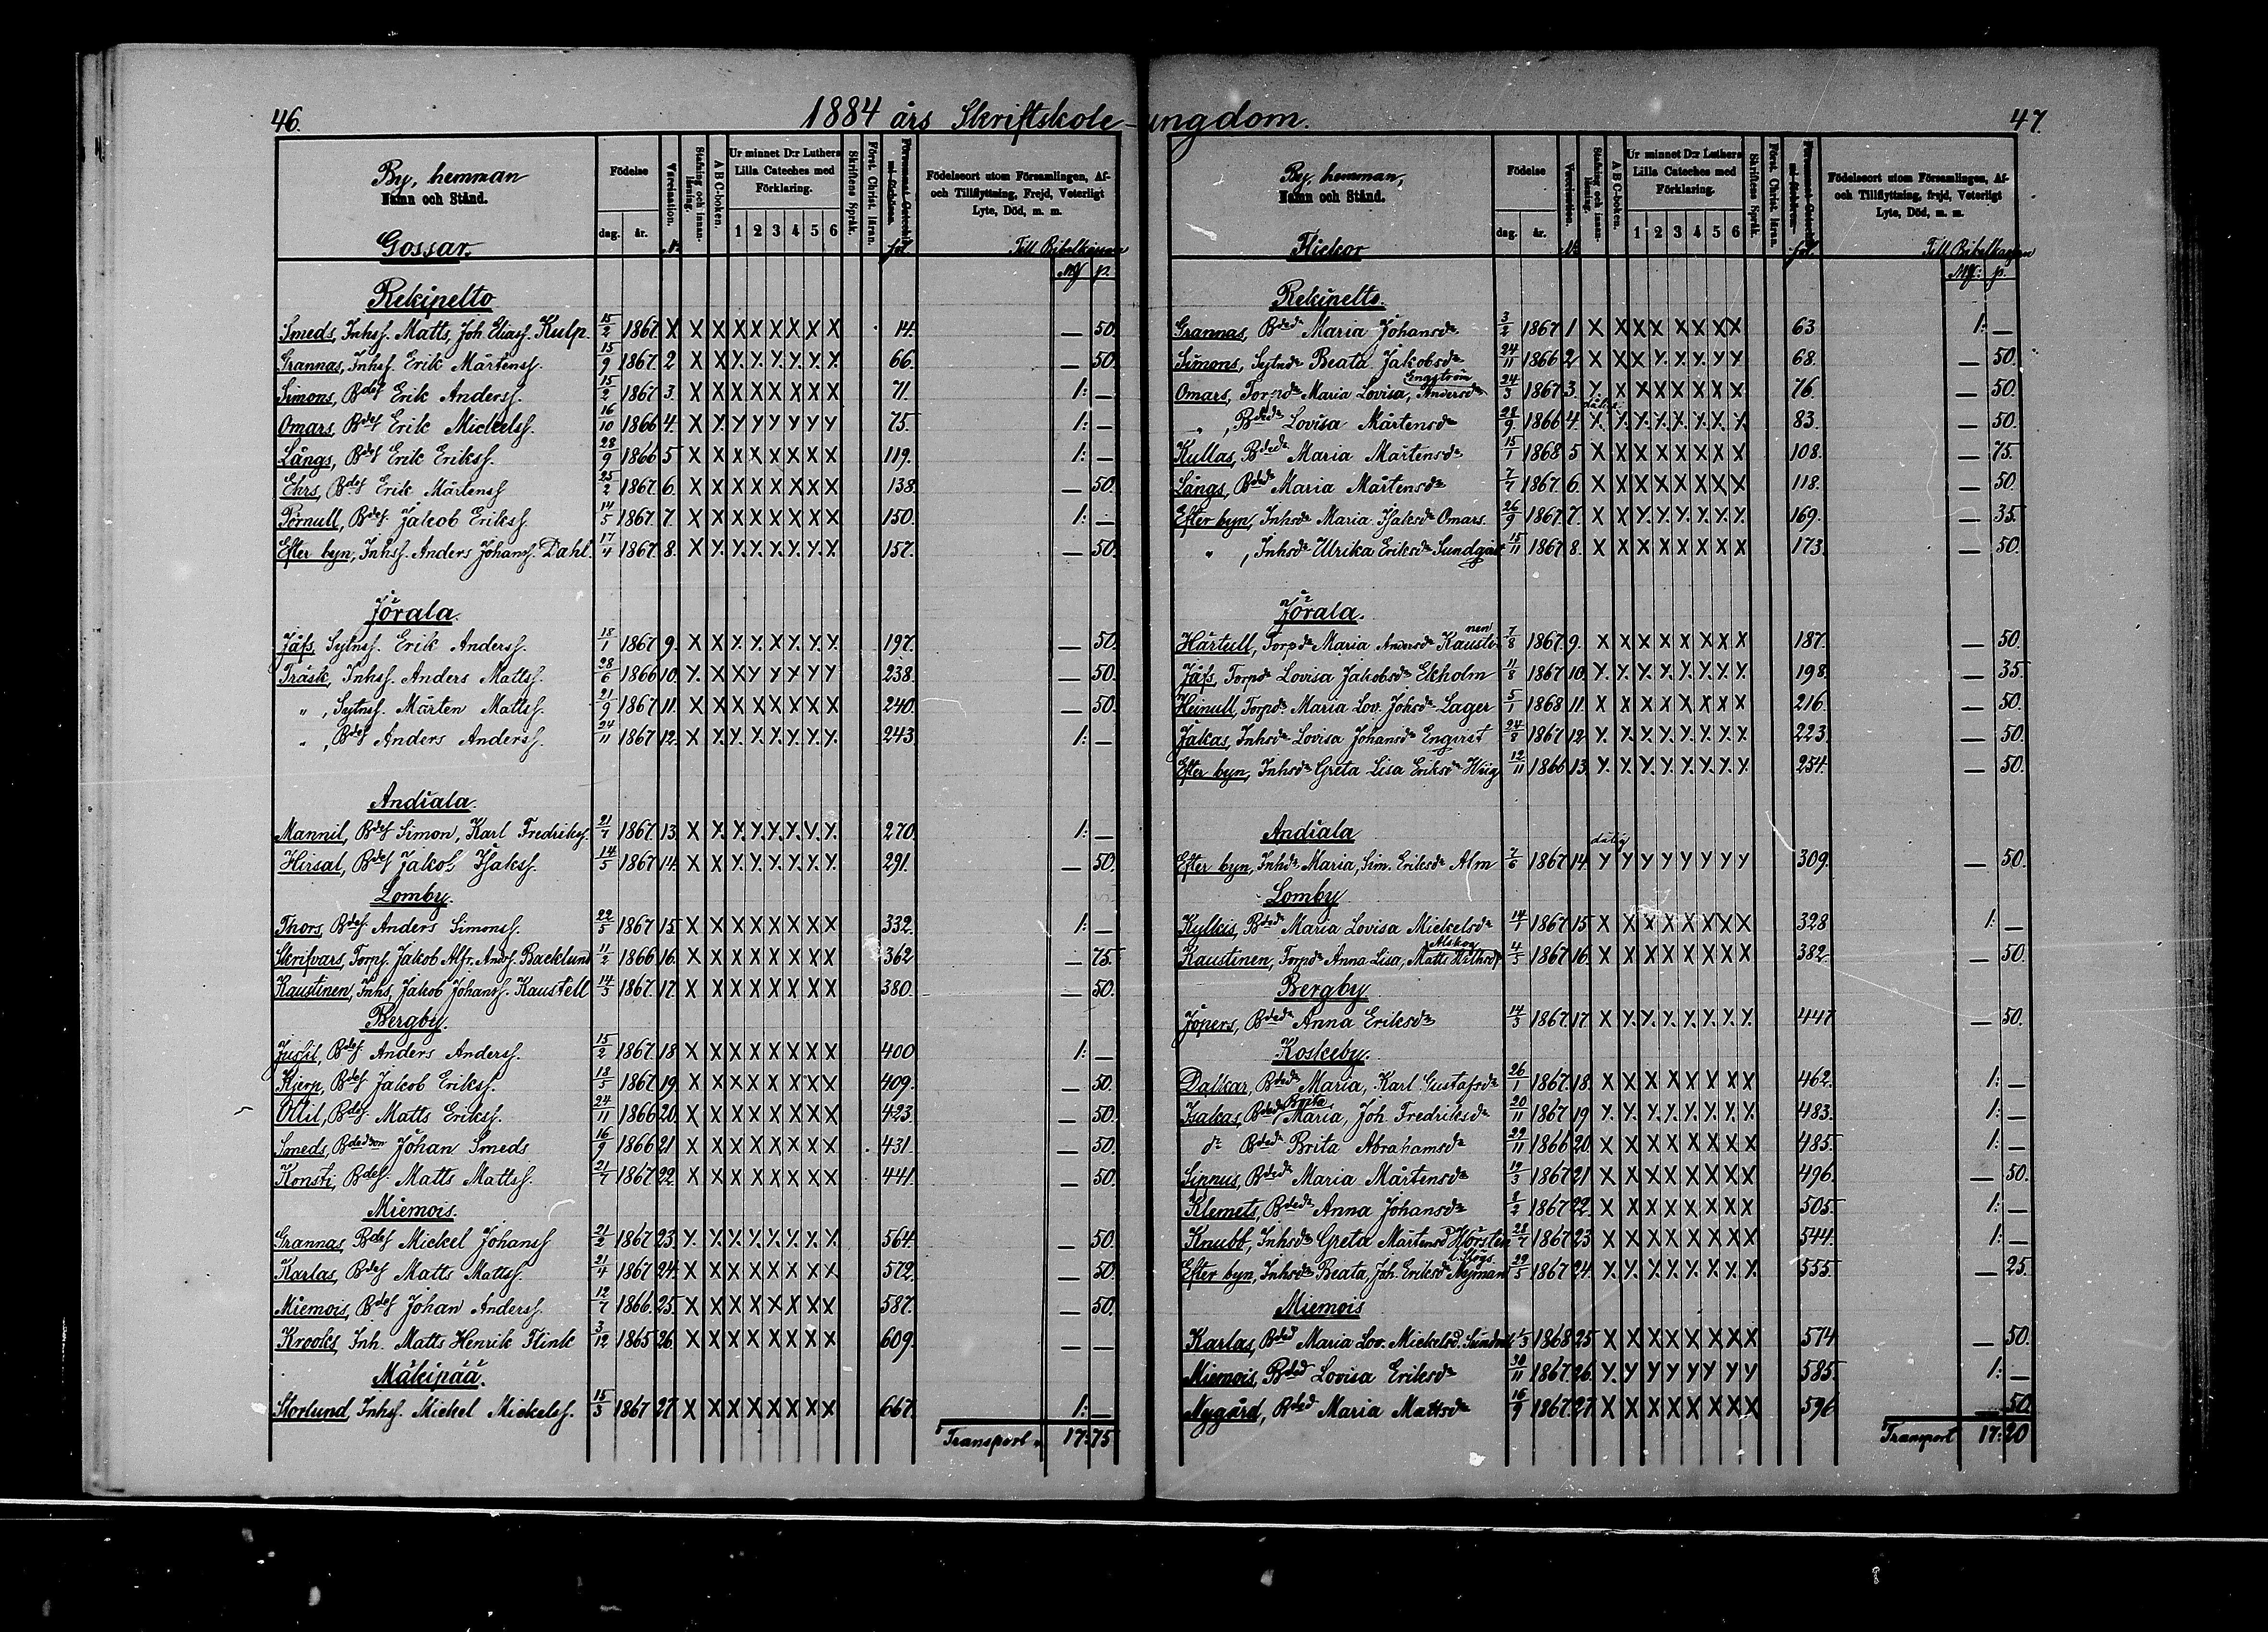 46.
1884 års Skriftskole-ungdom.
47.
By, hemman
Namn och Stånd.
Gossar.
Födelse
dag. år.
Vaccination.
Stafning och innanläsning.
A B C-boken.
Ur minnet D:r Luthers Lilla Cateches med Förklaring.
1 2 3 4 5 6
Skriftens Språk.
Först. Christ. läran.
fol.
Födelseort utom Församlingen, Af- och Tillflyttning, Frejd, Veterligt Lyte, Död, m. m.
Till Bibelkassan
Mf p.
Rekipelto
Smeds, Inhsf. Matts, Joh Eliasf. Kulp. 15/2 1867 X X X X X X X X X 14. — 50
Grannas, Inhsf. Erik Mårtensf. 15/9 1867. 2 X X Y. Y. Y. Y. Y. Y. 66. — 50
Simons, Bdef Erik Andersf. 15/2 1867 3. X X X X X X X X 71. 1: —
Omars, Bdef Erik Mickelsf. 16/10 1866 4. X Y. Y Y Y Y Y Y 75. 1: —
Långs, Bdef Erik Eriksf. 28/9 1866 5 X X X X X X X X 119. 1: —
Ehrs, Bdef Erik Mårtensf 25/2 1867. 6. X X X X X X X X 138. — 50.
Pernull, Bdef. Jakob Eriksf. 14/5 1867. 7. X X X X X X X X 150. 1: —
Efter byn, Inhsf. Anders Johansf. Dahl. 17/4 1867. 8. X Y. Y. Y. Y. Y. Y. Y. 157. — 50.
Jörala.
Jåfs, Sytnsf. Erik Andersf. 18/1 1867 9. X X Y. Y. X Y. Y. Y. 197. — 50
Träsk, Inhsf. Anders Mattsf. 28/6 1866 10. Y. X X Y Y Y Y Y 238. — 50.
" , Sytnsf. Mårten Mattsf. 21/9 1867 11. X X X X X X X X 240. — 50.
" , Bdef Anders Andersf. 24/11 1867 12. X Y. Y. Y. Y. Y. Y. Y. 243 1: —
Andiala.
Mannil, Bdef Simon, Karl Fredriksf. 21/7 1867 13. X Y. Y. Y. Y. Y. Y. Y. 270. 1: —
Hirsal, Bdef Jakob Isaksf. 14/5 1867 14. X X Y. Y. Y. Y. Y. Y. 291. — 50.
Lomby.
Thors, Bdef. Anders Simonsf. 22/5 1867 15 X X X X X X X X 332. 1: —
Skrifvars, Torpf. Jakob Alfr. Andf. Backlund 11/2 1866 16. X X X X X X X X 362 — 75.
Kaustinen, Inhs, Jakob Johansf. Kaustell 14/3 1867. 17. X X X X X X X X 380. — 50.
Bergby.
Jussil, Bdef. Anders Andersf. 15/2 1867. 18 X X X X X X X X 400 1: —
Kjerp, Bdef Jakob Eriksf. 18/5 1867 19. X X X X X X X X 409. — 50.
Ollil, Bdef. Matts Eriksf. 24/11 1866 20. X X X X X X X X 423. — 50.
Smeds, Bdedson Johan Smeds 16/9 1866 21 X X X X X X X X 431. — 50.
Konsti, Bdef. Matts Mattsf. 21/7 1867 22. X X X X X X X X 441. — 50.
Miemois.
Grannas, Bdef Mickel Johansf 21/2 1867 23. Y. Y. Y. Y. Y. Y. Y. Y. 564. — 50.
Karlas, Bdef Matts Mattsf. 21/4 1867 24. X X X X X X X X 572. — 50.
Miemois, Bdef Johan Andersf. 12/7 1866. 25. X X X X X X X X 587. — 50.
Krooks, Inh. Matts Henrik Flink 3/12 1865 26. X X X X X X X X 609. — —
Mäkipää.
Storlund, Inhsf. Mickel Mickelsf. 15/3 1867 27. X X X X X X X X 667. 1: —
Transport 17:75
By, hemman,
Namn och Stånd.
Flickor
Födelse
dag. år.
Vaccination.
Stafning och innanläsning.
A B C-boken.
Ur minnet D:r Luthers Lilla Cateches med Förklaring.
1 2 3 4 5 6
Skriftens Språk.
Först. Christ. läran.
fol.
Födelseort utom Församlingen, Af- och Tillflyttning, frejd, Veterligt Lyte, Död, m. m.
Till Bibelkassan
Mf: p.
Rekipelto.
Grannas, Bdedr Maria Johansdr 3/2 1867 1 X X X X X X X X 63 1: —
Simons, Sytndr Beata Jakobsdr 24/11 1866 2 X X X Y. Y. Y. Y. Y 68. — 50.
Engström
Omars, Torpdr Maria Lovisa, Andersdr 24/3 1867 3. Y. X X X X X X X 76. — 50.
dålig
" , Bdedr Lovisa Mårtensdr 28/9 1866 4. Y. Y. Y. Y. Y. Y. Y. Y. 83. — 50.
Kullas, Bdedr Maria Mårtensdr 15/1 1868 5 X X X X X X X X 108. — 75.
Långs, Bdedr Maria Mårtensdr 7/7 1867. 6. X X X X X X X X 118. — 50.
Efter byn, Inhsdr Maria Isaksdr Omars. 26/9 1867. 7. X X Y. Y. Y. Y. Y. Y. 169. — 35.
" , Inhsdr Ulrika Eriksdr Sundqvist 15/11 1867 8. X X X X X X X X 173. — 50.
Jörala.
Härtull, Torpdr Maria Andersdr Kaustinen 7/8 1867. 9. X X X X X X X X 187. — 50.
Jåfs, Torpdr Lovisa Jakobsdr Ekholm 11/8 1867 10. Y. Y. Y. Y. Y. Y. Y. Y. 198. — 35.
Heinull, Torpdr. Maria Lov. Johsdr Lager 5/1 1868 11. X X X X X X X X 216. — 50.
Jakas, Inhsdr Lovisa Johansdr Enqvist 24/8 1867 12. Y. Y. Y. Y. Y. Y. Y. Y. 223. — 50.
Efter byn, Inhsdr Greta Lisa Eriksdr Wiig 12/11 1866 13. Y. Y. Y. Y. Y. Y. Y. Y. 254. — 50.
Andiala
dålig
Efter byn, Inhdr Maria, Sim. Eriksdr Alm 7/6 1867 14. Y Y Y Y Y Y Y Y 309. — 50.
Lomby
Kylkis, Bdedr Maria Lovisa Mickelsdr 14/7 1867 15 X X X X X X X X 328 1: —
Alskog
Kaustinen, Torpdr Anna Lisa, Matts 4/3 1867 16. X X X X X X X X 382. — 50
Bergby
Jöpers, Bdedr Anna Eriksdr 14/3 1867. 17. X Y. Y. Y. Y. Y. Y. Y. 447 — 50.
Koskeby.
Dalkar, Bdedr Maria, Karl Gustafsdr 26/1 1867 18. X X X X X X X X 462. 1: —
Brita
Isakas, Bdedr Maria, Joh. Fredriksdr 20/11 1867 19 Y. Y. Y. Y. Y. Y. Y. Y. 483. 1: —
do Bdedr Brita Abrahamsdr 29/11 1866 20. X X X X X X X X 485. 1: —
Sinnus, Bdedr Maria Mårtensdr 19/3 1867 21 X X X X X X X X 496. — 50.
Klemets, Bdedr Anna Johansdr 8/2 1867 22. X X X X X X X X 505. 1: —
Knubb, Inhsdr Greta Mårtensd Hörsten 28/7 1867 23 X X X X X X X X 544. 1: —
Efter byn, Inhsdr Beata, Joh. Eriksdr Nyman 29/5 1867 24. Y. Y. Y. Y. Y. Y. Y. Y. 555. — 25.
Miemois
Karlas, Bded Maria Lov. Mickelsd. 1/3 1868 25 X X X X X X X X 574 — 50.
Miemois, Bded Lovisa Eriksdr 30/11 1867 26. Y. Y Y Y Y Y Y Y 585. 1: —
Nygård, Bded Maria Mattsdr 16/9 1867. 27. X X X X X X X X 596 — 50
Transport 17:20